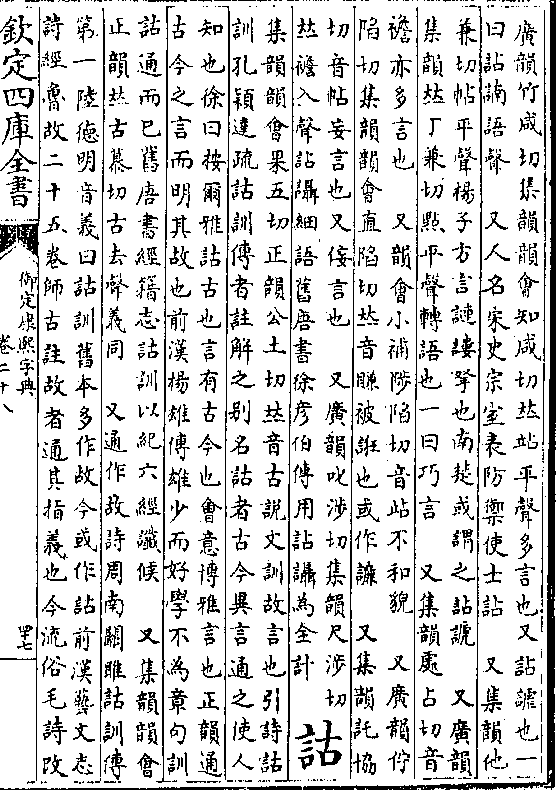 廣韻竹咸切集韻韻會知咸切𠀤站平聲多言也又詀謕也一
曰詀諵語聲　又人名宋史宗室表防禦使士詀　又集韻他
兼切帖平聲楊子方言謰謱拏也南楚或謂之詀謕　又廣韻
集韻𠀤丁兼切點平聲轉語也一曰巧言　又集韻處占切音
襜亦多言也　又韻會小補陟陷切音站不和貌　又廣韻佇
陷切集韻韻會直陷切𠀤音賺被誑也或作譧　又集韻託協
切音帖妄言也又佞言也　又廣韻叱涉切集韻尺涉切
𠀤襜入聲詀讘細語舊唐書徐彥伯傳用詀讘為全計
詁
集韻韻會果五切正韻公土切𠀤音古說文訓故言也引詩詁
訓孔穎達疏詁訓傳者註解之别名詁者古今異言通之使人
知也徐曰按爾雅詁古也言有古今也會意博雅言也正韻通
古今之言而明其故也前漢楊雄傳雄少而好學不為章句訓
詁通而已舊唐書經籍志詁訓以紀六經讖候　又集韻韻會
正韻𠀤古慕切古去聲義同　又通作故詩周南關雎詁訓傳
第一陸德明音義曰詁訓舊本多作故今或作詁前漢藝文志
詩經魯故二十五卷師古註故者通其指義也今流俗毛詩改
欽定四庫全書
御定康熙字典
卷二十八
四七